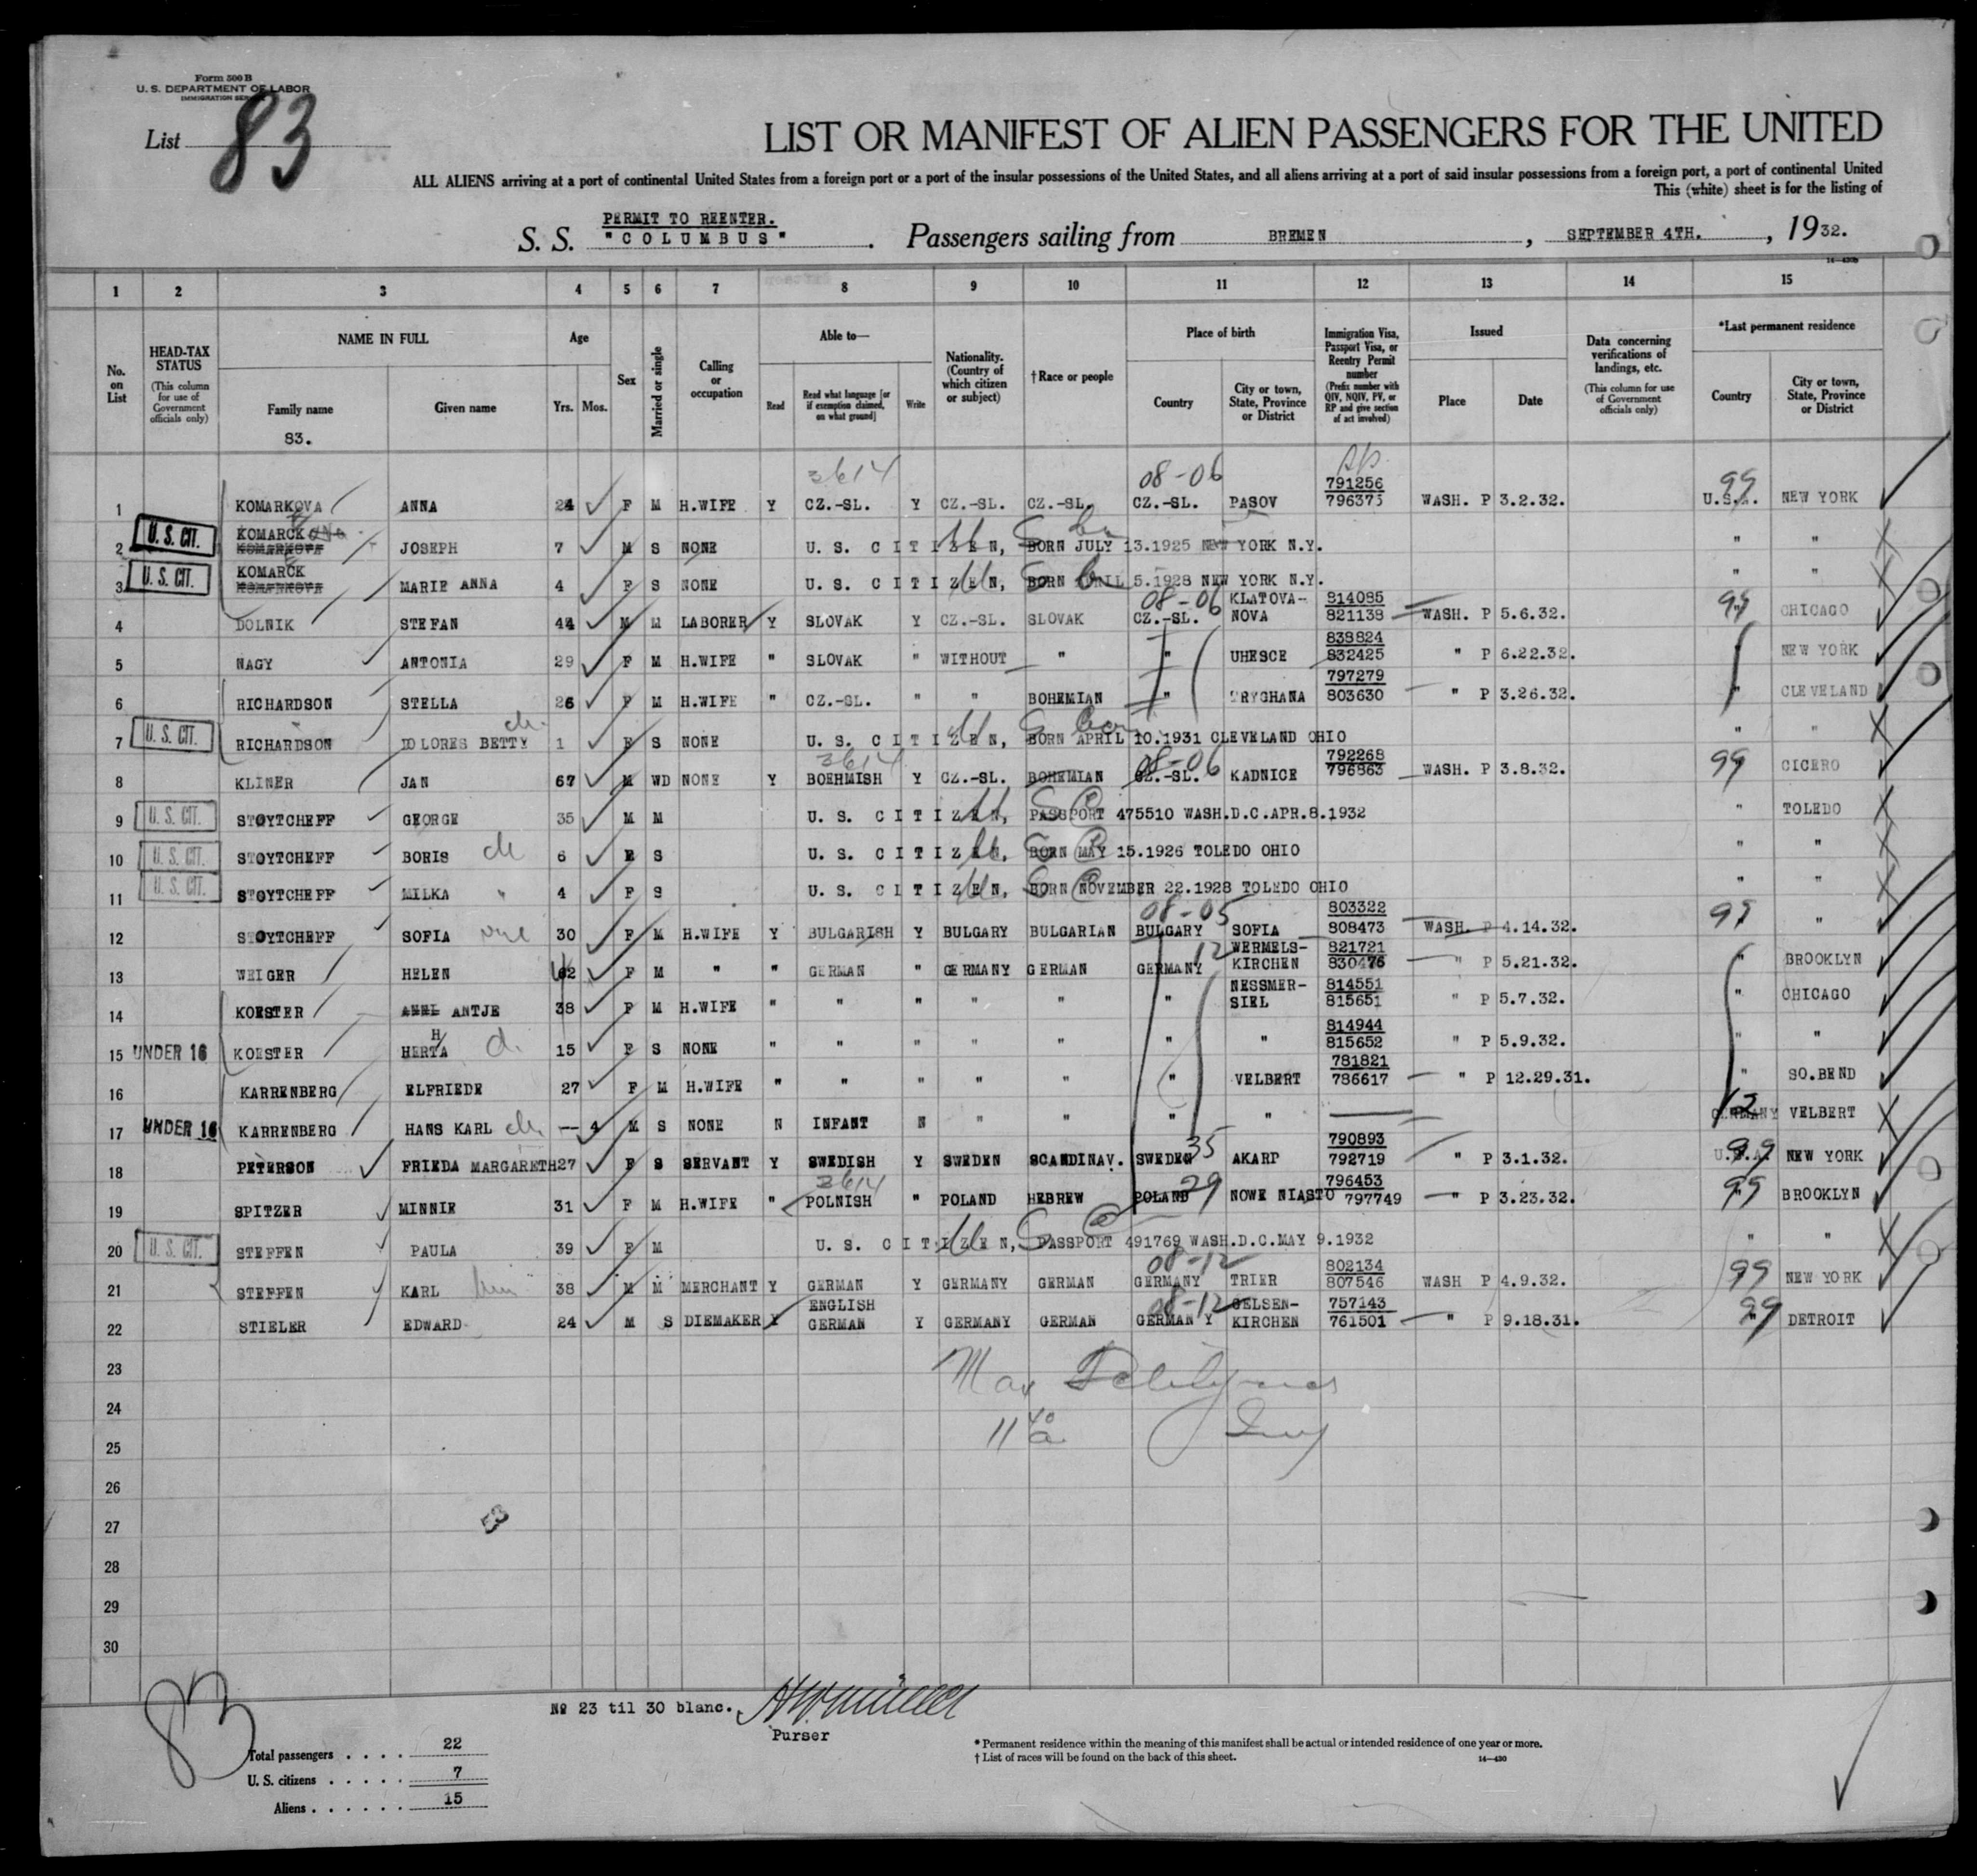 Form 500 B
U. S. DEPARTMENT OF LABOR
IMMIGRATION SERVICE
List 83
LIST OR MANIFEST OF ALIEN PASSENGERS FOR THE UNITED
ALL ALIENS arriving at a port of continental United States from a foreign port or a port of the insular possessions of the United States, and all aliens arriving at a port of said insular possessions from a foreign port, a port of continental United
This (white) sheet is for the listing of
PERMIT TO REENTER.
S. S. "COLUMBUS" . Passengers sailing from BREMEN , SEPTEMBER 4TH. , 1932.
1 2 3 4 5 6 7 8 9 10 11 12 13 14 15
No. on List
HEAD-TAX STATUS
(This column for use of Government officials only)
NAME IN FULL
Family name
Given name
83.
Age
Yrs. Mos.
Sex
Married or single
Calling or occupation
Able to—
Read
Read what language [or if exemption claimed, on what ground]
Write
Nationality. (Country of which citizen or subject)
†Race or people
Place of birth
Country
City or town, State, Province or District
Immigration Visa, Passport Visa, or Reentry Permit number
(Prefix number with QIV, NQIV, PV, or RP and give section of act involved)
Issued
Place
Date
Data concerning verifications of landings, etc.
(This column for use of Government officials only)
*Last permanent residence
Country
City or town, State, Province or District
3614 08-06 791256 99
1 KOMARKOVA ANNA 24 F M H.WIFE Y CZ.-SL. Y CZ.-SL. CZ.-SL. CZ.-SL. PASOV 796375 WASH. P 3.2.32. U.S.A. NEW YORK
U.S. CIT. KOMARCK
2 KOMARKOVA JOSEPH 7 M S NONE U. S. CITIZEN, BORN JULY 13.1925 NEW YORK N.Y. " "
U.S. CIT. KOMARCK
3 KOMARKOVA MARIE ANNA 4 F S NONE U. S. CITIZEN, BORN APRIL 5.1928 NEW YORK N.Y. " "
08-06 KLATOVA- 814085 99
4 DOLNIK STEFAN 44 M M LABORER Y SLOVAK Y CZ.-SL. SLOVAK CZ.-SL. NOVA 821138 WASH. P 5.6.32. " CHICAGO
838824
5 NAGY ANTONIA 29 F M H.WIFE " SLOVAK " WITHOUT " " UHESCE 832425 " P 6.22.32. NEW YORK
797279
6 RICHARDSON STELLA 26 F M H.WIFE " CZ.-SL. " " BOHEMIAN " 803630 " P 3.26.32. " CLEVELAND
7 U.S. CIT. RICHARDSON DOLORES BETTY 1 F S NONE U. S. CITIZEN, BORN APRIL 10.1931 CLEVELAND OHIO " "
3614 08-06 792268
8 KLINER JAN 67 M WD NONE Y BOEHMISH Y CZ.-SL. BOHEMIAN CZ.-SL. KADNICE 796863 WASH. P 3.8.32. 99 CICERO
9 U.S. CIT. STOYTCHEFF GEORGE 35 M M U. S. CITIZEN, PASSPORT 475510 WASH.D.C.APR.8.1932 " TOLEDO
10 U.S. CIT. STOYTCHEFF BORIS 6 S U. S. CITIZEN, BORN MAY 15.1926 TOLEDO OHIO " "
11 U.S. CIT. STOYTCHEFF MILKA 4 F S U. S. CITIZEN, BORN NOVEMBER 22.1928 TOLEDO OHIO " "
08-05 803322 99
12 STOYTCHEFF SOFIA 30 F M H.WIFE Y BULGARISH Y BULGARY BULGARIAN BULGARY SOFIA 808473 WASH. P 4.14.32. "
12 WERMELS- 821721
13 WEIGER HELEN 62 F M " " GERMAN " GERMANY GERMAN GERMANY KIRCHEN 830476 " P 5.21.32. " BROOKLYN
NESSMER- 814551
14 KOESTER ANTJE 38 F M H.WIFE " " " " " " SIEL 815651 " P 5.7.32. " CHICAGO
H 814944
15 UNDER 16 KOESTER HERTA 15 F S NONE " " " " " " " 815652 " P 5.9.32. " "
781821
16 KARRENBERG ELFRIEDE 27 F M H.WIFE " " " " " " VELBERT 786617 " P 12.29.31. " SO.BEND
12
17 UNDER 16 KARRENBERG HANS KARL — 4 M S NONE N INFANT N " " " " GERMANY VELBERT
35 790893 99
18 PETERSON FRIEDA MARGARETH 27 F S SERVANT Y SWEDISH Y SWEDEN SCANDINAV. SWEDEN AKARP 792719 " P 3.1.32. U.S.A. NEW YORK
3614 29 796453 99
19 SPITZER MINNIE 31 F M H.WIFE " POLNISH " POLAND HEBREW POLAND NOWE NIASTO 797749 " P 3.23.32. " BROOKLYN
20 U.S. CIT. STEFFEN PAULA 39 F M U. S. CITIZEN, PASSPORT 491769 WASH.D.C.MAY 9.1932 " "
08-12 802134 99
21 STEFFEN KARL 38 M M MERCHANT Y GERMAN Y GERMANY GERMAN GERMANY TRIER 807546 WASH P 4.9.32. NEW YORK
ENGLISH 08-12 GELSEN- 757143 99
22 STIELER EDWARD 24 M S DIEMAKER Y GERMAN Y GERMANY GERMAN GERMANY KIRCHEN 761501 " P 9.18.31. " DETROIT
23 Max
24 11 40 a
25
26
27
28
29
30
83
№ 23 til 30 blanc.
Purser
Total passengers . . . . 22
U. S. citizens . . . . . 7
Aliens . . . . . . 15
* Permanent residence within the meaning of this manifest shall be actual or intended residence of one year or more.
† List of races will be found on the back of this sheet.
14—430